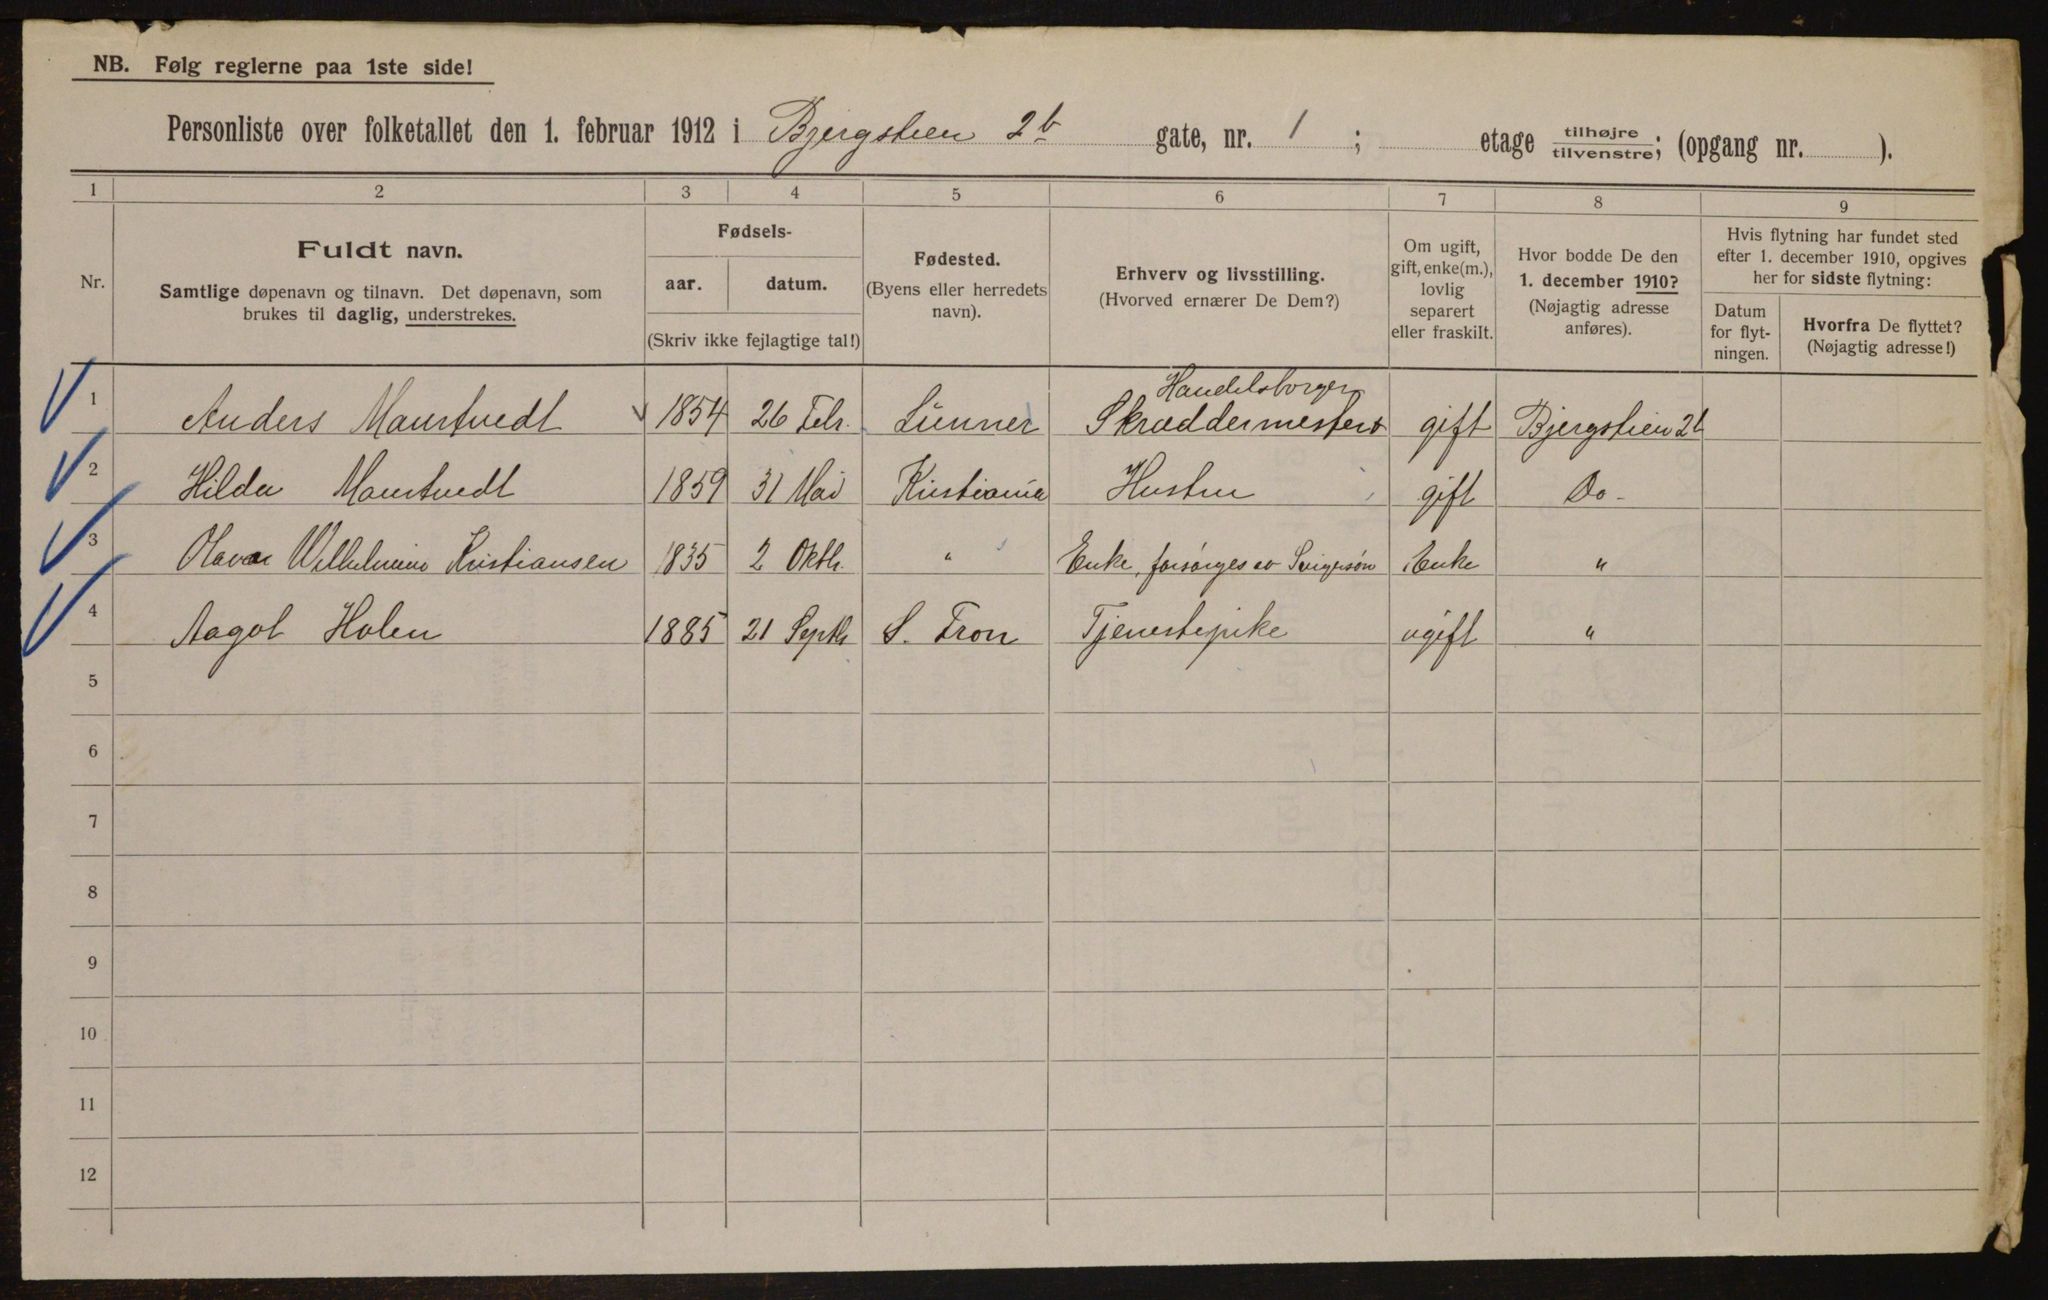 NB. Følg reglerne paa 1ste side!
Personliste over folketallet den 1. februar 1912 i Bjergstien 2b gate, nr. 1 ; etage tilhøjre/tilvenstre; (opgang nr. ).
1 2 3 4 5 6 7 8 9
Nr.
Fuldt navn.
Samtlige døpenavn og tilnavn. Det døpenavn, som
brukes til daglig, understrekes.
Fødsels-
aar. datum.
(Skriv ikke fejlagtige tal!)
Fødested.
(Byens eller herredets
navn).
Erhverv og livsstilling.
(Hvorved ernærer De Dem?)
Om ugift,
gift, enke(m.),
lovlig
separert
eller fraskilt.
Hvor bodde De den
1. december 1910?
(Nøjagtig adresse
anføres).
Hvis flytning har fundet sted
efter 1. december 1910, opgives
her for sidste flytning:
Datum
for flyt-
ningen.
Hvorfra De flyttet?
(Nøjagtig adresse!)
Handelsborger
1 Anders Maurtvedt 1854 26 Febr. Lunner Skræddermester gift Bjergstien 2b
2 Hilda Maurtvedt 1859 31 Mai Kristiania Hustru gift Do -
3 Olava Wilhelmine Kristiansen 1835 2 Oktb. " Enke, forsørges av Svigersøn Enke "
4 Aagot Holen 1885 21 Septb S. Fron Tjenestepike ugift "
5
6
7
8
9
10
11
12